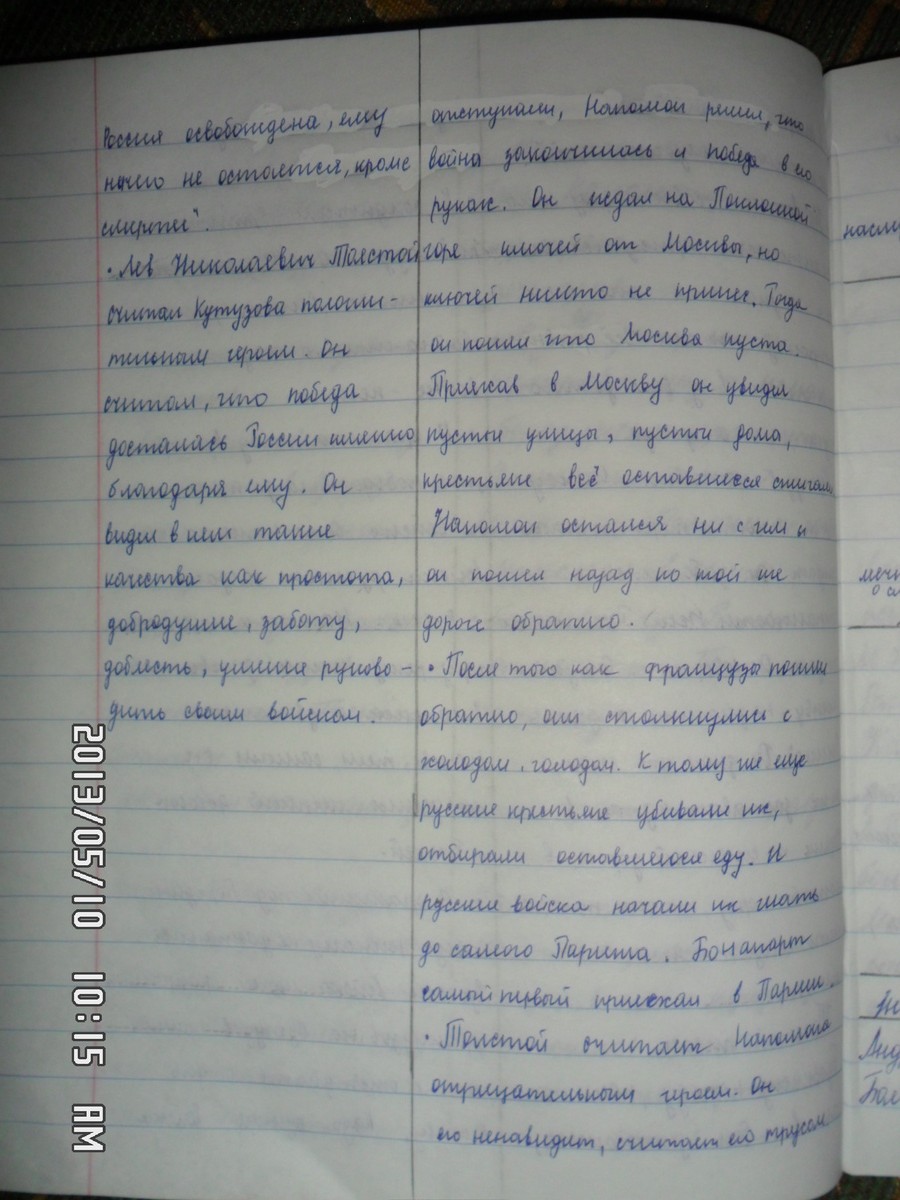 Россия освобождена, ему
ничего не остается, кроме
смерти".
• Лев Николаевич Толстой
считал Кутузова положи-
тельным героем. Он
считал, что победа
досталась России именно
благодаря ему. Он
видел в нем такие
качества как простота,
добродушие, заботу,
доблесть, умение руково-
дить своим войском.
отступали, Наполеон решил, что
война закончилась и победа в его
руках. Он ждал на Поклонной
горе ключей от Москвы, но
ключей никто не принес. Тогда
он понял что Москва пуста.
Приехав в Москву он увидел
пустые улицы, пустые дома,
крестьяне всё оставшееся сжигали
Наполеон остался ни с чем и
он пошел назад по той же
дороге обратно.
• После того как французы пошли
обратно, они столкнулись с
холодом, голодом. К тому же еще
русские крестьяне убивали их,
отбирали оставшегося еду. И
русские войска начали их гнать
до самого Парижа. Бонапарт
самый первый приехал в Париж.
• Толстой считает Наполеона
отрицательным героем. Он
его ненавидит, считает его трусом
2013/05/10 10:15 AM